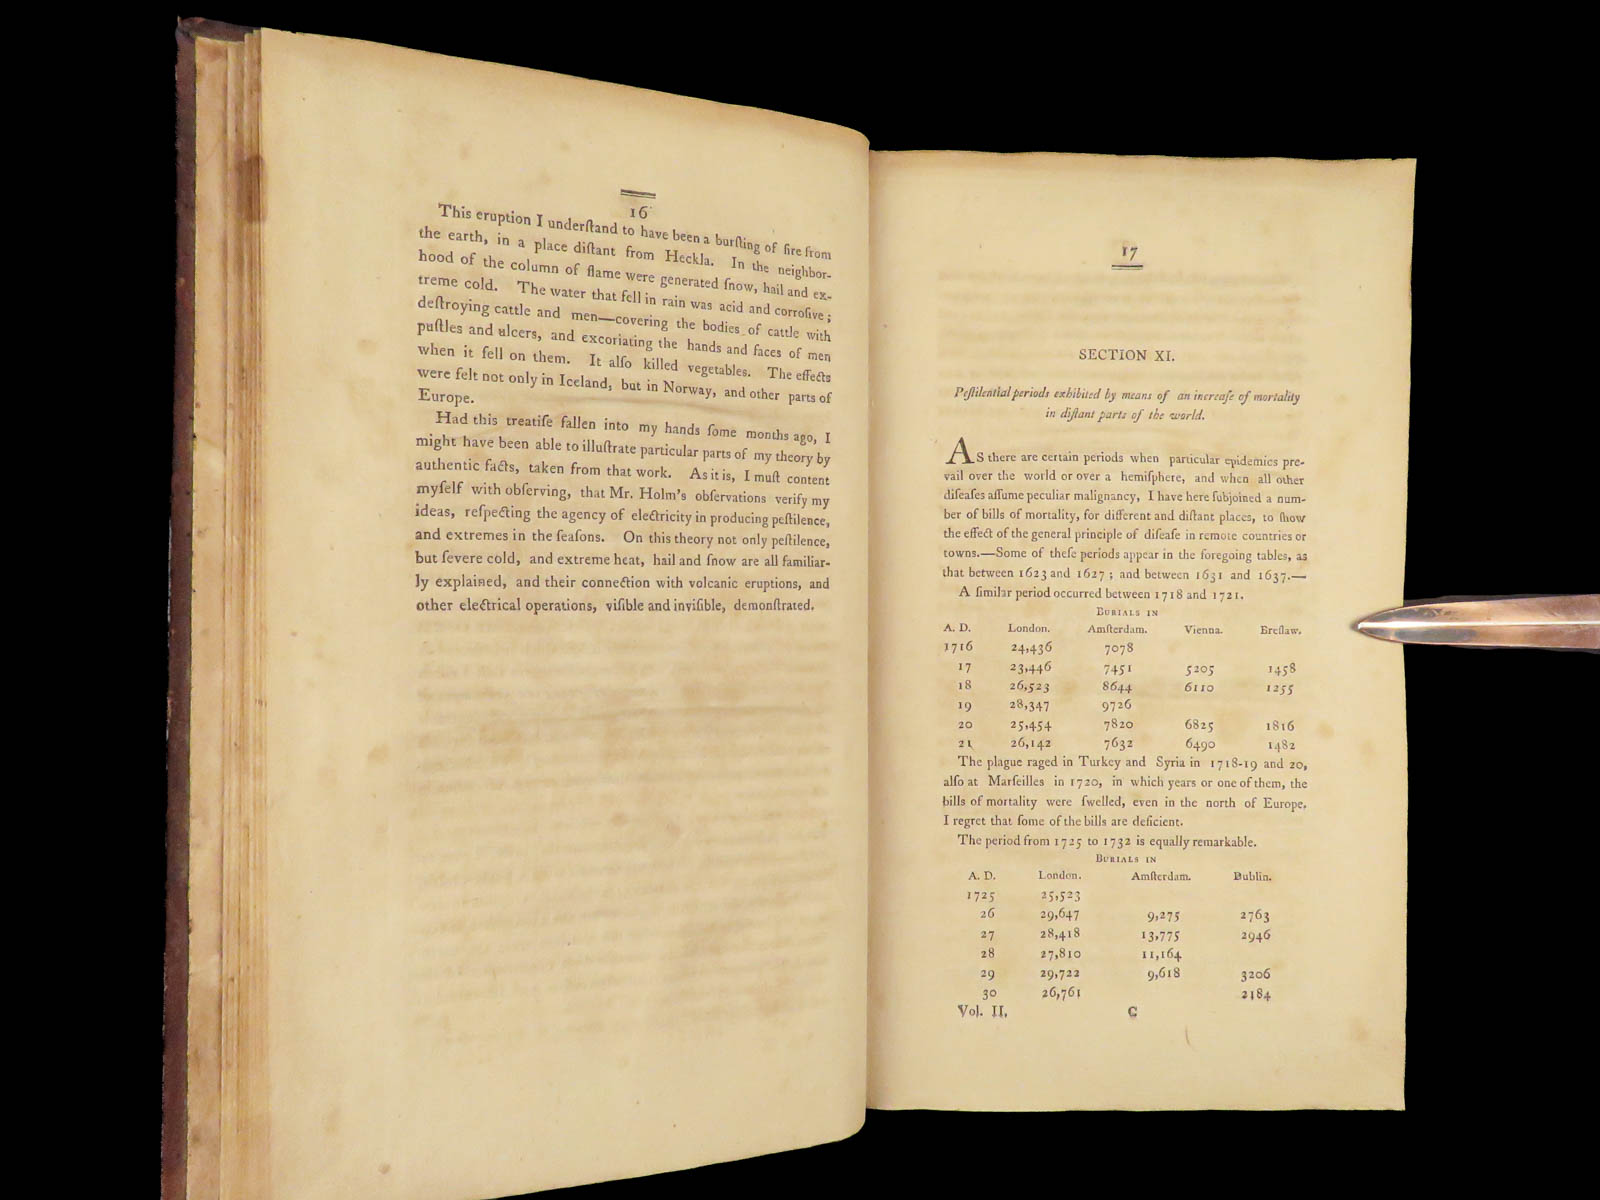 16
This eruption I underſtand to have been a burſting of fire from
the earth, in a place diſtant from Heckla. In the neighbor-
hood of the column of flame were generated ſnow, hail and ex-
treme cold. The water that fell in rain was acid and corroſive;
deſtroying cattle and men—covering the bodies of cattle with
puſtles and ulcers, and excoriating the hands and faces of men
when it fell on them. It alſo killed vegetables. The effects
were felt not only in Iceland, but in Norway, and other parts of
Europe.
Had this treatiſe fallen into my hands ſome months ago, I
might have been able to illuſtrate particular parts of my theory by
authentic facts, taken from that work. As it is, I muſt content
myſelf with obſerving, that Mr. Holm's obſervations verify my
ideas, reſpecting the agency of electricity in producing peſtilence,
and extremes in the ſeaſons. On this theory not only peſtilence,
but ſevere cold, and extreme heat, hail and ſnow are all familiar-
ly explained, and their connection with volcanic eruptions, and
other electrical operations, viſible and inviſible, demonſtrated.
17
SECTION XI.
Peſtilential periods exhibited by means of an increaſe of mortality
in diſtant parts of the world.
AS there are certain periods when particular epidemics pre-
vail over the world or over a hemiſphere, and when all other
diſeaſes aſſume peculiar malignancy, I have here ſubjoined a num-
ber of bills of mortality, for different and diſtant places, to ſhow
the effect of the general principle of diſeaſe in remote countries or
towns.—Some of theſe periods appear in the foregoing tables, as
that between 1623 and 1627; and between 1631 and 1637.—
A ſimilar period occurred between 1718 and 1721.
BURIALS IN
A. D. London. Amſterdam. Vienna. Breſlaw.
1716 24,436 7078
17 23,446 7451 5205 1458
18 26,523 8644 6110 1255
19 28,347 9726
20 25,454 7820 6825 1816
21 26,142 7632 6490 1482
The plague raged in Turkey and Syria in 1718-19 and 20,
alſo at Marſeilles in 1720, in which years or one of them, the
bills of mortality were ſwelled, even in the north of Europe.
I regret that ſome of the bills are deficient.
The period from 1725 to 1732 is equally remarkable.
BURIALS IN
A. D. London. Amſterdam. Dublin.
1725 25,523
26 29,647 9,275 2763
27 28,418 13,775 2946
28 27,810 11,164
29 29,722 9,618 3206
30 26,761 2184
Vol. II. C